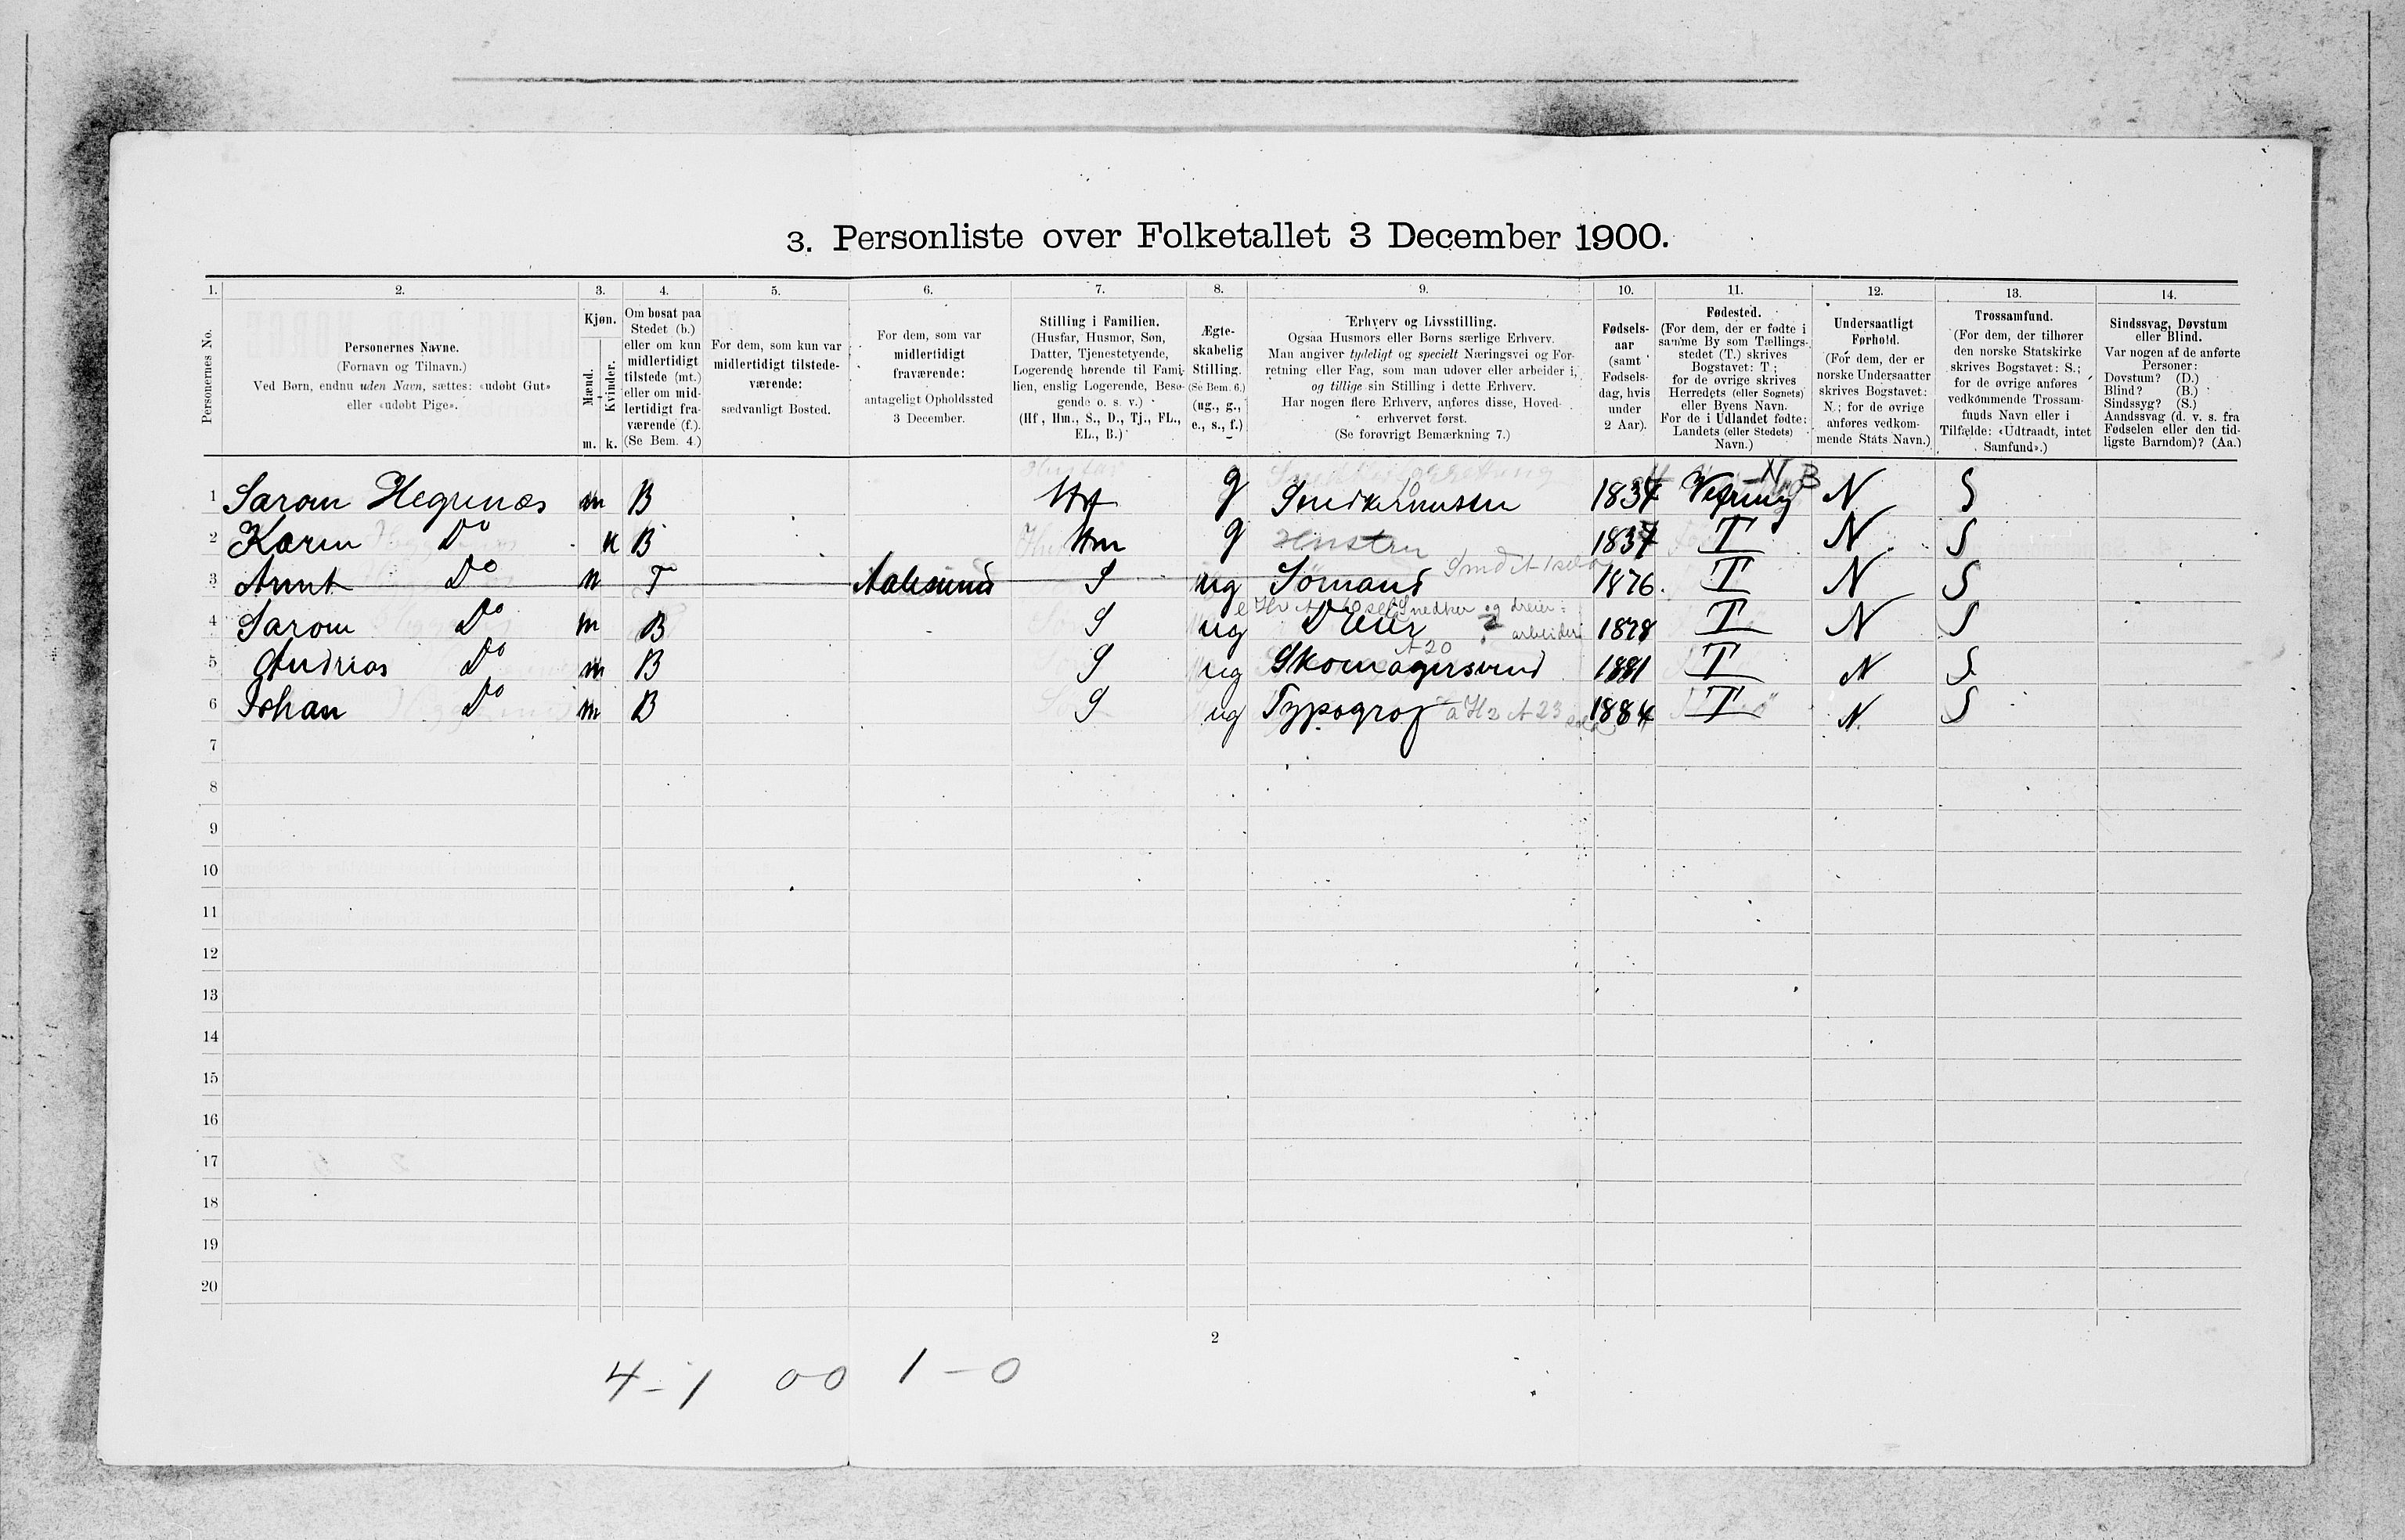 3. Personliste over Folketallet 3 December 1900.
1. 2. 3. 4. 5. 6. 7. 8. 9. 10. 11. 12. 13. 14.
Personernes No.
Personernes Navne.
(Fornavn og Tilnavn.)
Ved Børn, endnu uden Navn, sættes: «udøbt Gut»
eller «udøbt Pige».
Kjøn.
Mænd.
Kvinder.
m. k.
Om bosat paa
Stedet (b.)
eller om kun
midlertidigt
tilstede (mt.)
eller om mid-
lertidigt fra-
værende (f.).
(Se Bem. 4.)
For dem, som kun var
midlertidigt tilstede-
værende:
sædvanligt Bosted.
For dem, som var
midlertidigt
fraværende:
antageligt Opholdssted
3 December.
Stilling i Familien.
(Husfar, Husmor, Søn,
Datter, Tjenestetyende,
Logerende hørende til Fami-
lien, enslig Logerende, Besø-
gende o. s. v.)
(Hf, Hm., S., D., Tj., FL.,
EL., B.)
Ægte-
skabelig
Stilling.
(Se Bem. 6.)
(ug., g.,
e., s., f.)
Erhverv og Livsstilling.
Ogsaa Husmors eller Børns særlige Erhverv.
Man angiver tydeligt og specielt Næringsvei og For-
retning eller Fag, som man udøver eller arbeider i,
og tillige sin Stilling i dette Erhverv.
Har nogen flere Erhverv, anføres disse, Hoved-
erhvervet først.
(Se forøvrigt Bemærkning 7.)
Fødsels-
aar
(samt
Fødsels-
dag, hvis
under
2 Aar).
Fødested.
(For dem, der er fødte i
samme By som Tællings-
stedet (T.) skrives
Bogstavet: T;
for de øvrige skrives
Herredets (eller Sognets)
eller Byens Navn.
For de i Udlandet fødte:
Landets (eller Stedets)
Navn.)
Undersaatligt
Forhold.
(For dem, der er
norske Undersaatter
skrives Bogstavet:
N.; for de øvrige
anføres vedkom-
mende Stats Navn.)
Trossamfund.
(For dem, der tilhører
den norske Statskirke
skrives Bogstavet: S.;
for de øvrige anføres
vedkommende Trossam-
funds Navn eller i
Tilfælde: «Udtraadt, intet
Samfund».)
Sindssvag, Døvstum
eller Blind.
Var nogen af de anførte
Personer:
Døvstum? (D.)
Blind? (B.)
Sindssyg? (S.)
Aandssvag (d. v. s. fra
Fødselen eller den tid-
ligste Barndom)? (Aa.)
1 Sarom Hegrenæs m B Hf g Snedkermester N B N S
2 Karen Do k B Hm g T N S
3 Arnt Do m T Aalesund S ug Sømand 1876 T N S
Snedker og dreier-
4 Sarom Do m B S ug Dreier arbeider 1878 T N S
A 20
5 Andrias Do m B S ug Skomagersvend 1881 T N S
6 Johan Do m B S ug Typograf 1884 T N S
7
8
9
10
11
12
13
14
15
16
17
18
19
20
2
4-1 00 1-0